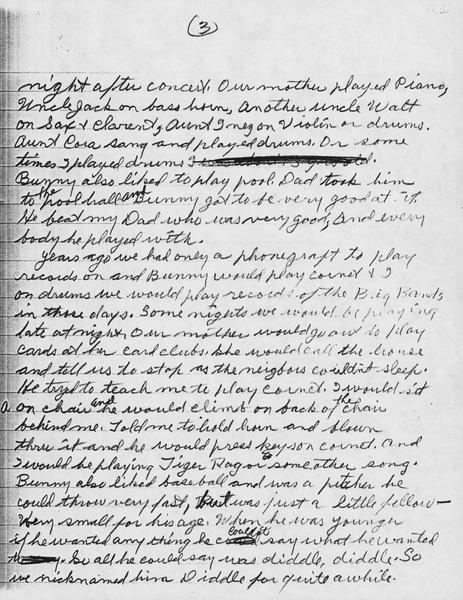 (3)
night after concert. Our mother played Piano,
Uncle Jack on bass horn, Another uncle Walt
on Sax & Clarent, Aunt Inez on Violin or drums.
Aunt Cora sang and played drums. Or some
times I played drums
Bunny also liked to play pool. Dad took him
to the pool hall and Bunny got to be very good at it.
He beat my Dad who was very good, And every
body he played with.
Years ago we had only a phonegraft to play
records on and Bunny would play cornet & I
on drums we would play records of the Big Bands
in those days. Some nights we would be playing
late at night, Our mother would go out to play
cards at her card clubs. She would call the house
and tell us to stop as the neigbors couldn't sleep.
He tryed to teach me to play cornet. I would sit
on a chair and he would climb on back of the chair
behind me. Told me to hold horn and blown
thru it and he would press keys on cornet. And
I would be playing Tiger Rag or some other song.
Bunny also liked baseball and was a pitcher he
could throw very fast, but was just a little fellow-
Very small for his age. When he was younger
if he wanted any thing he couldn't say what he wanted
So all he could say was diddle, diddle. So
we nicknamed him Diddle for quite awhile.